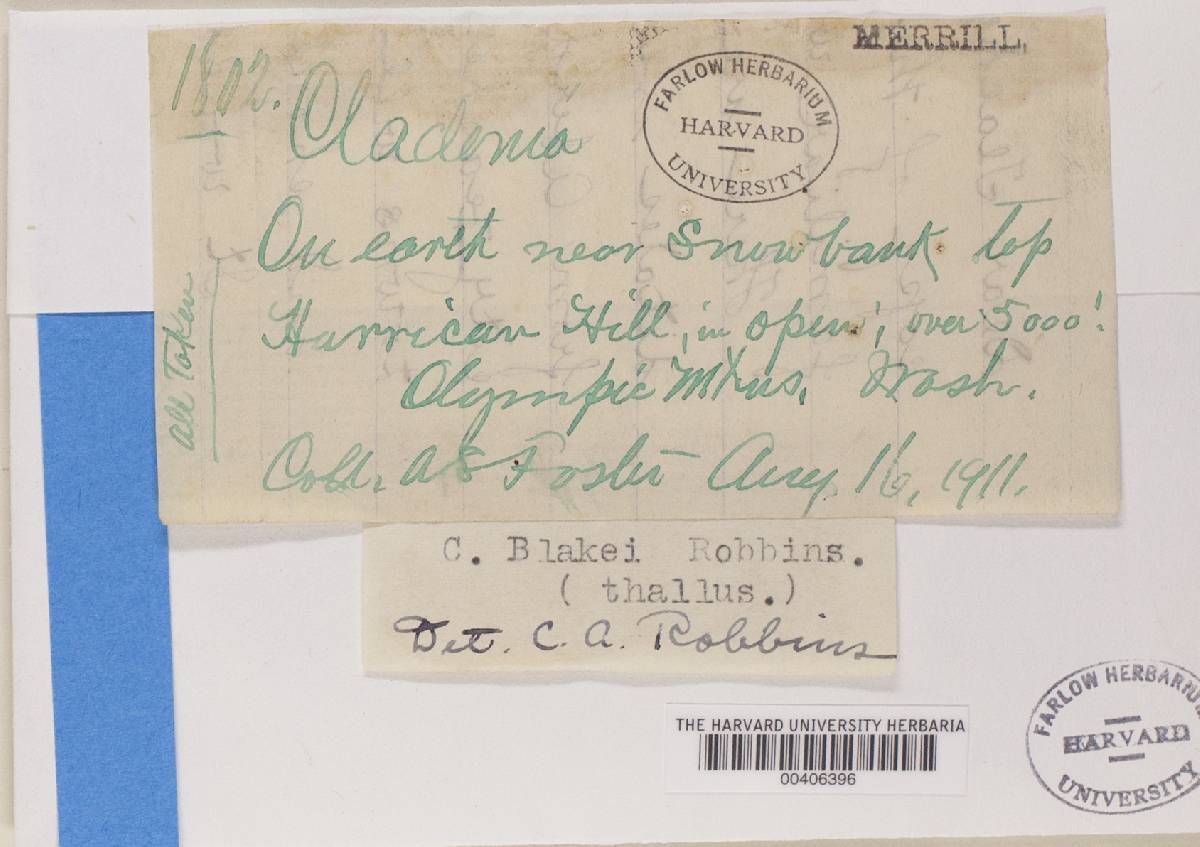 MERRILL.
1802.
FARLOW HERBARIUM
HARVARD
UNIVERSITY.
Cladonia
On earth near Snowbank top
Hurrican Hill, in open; over 5000'.
Olympic Mtns. Wash.
Coll. A S Foster Aug 16, 1911.
All Taken
C. Blakei Robbins.
( thallus.)
Det. C. A. Robbins
THE HARVARD UNIVERSITY HERBARIA
00406396
FARLOW HERBARIUM
HARVARD
UNIVERSITY